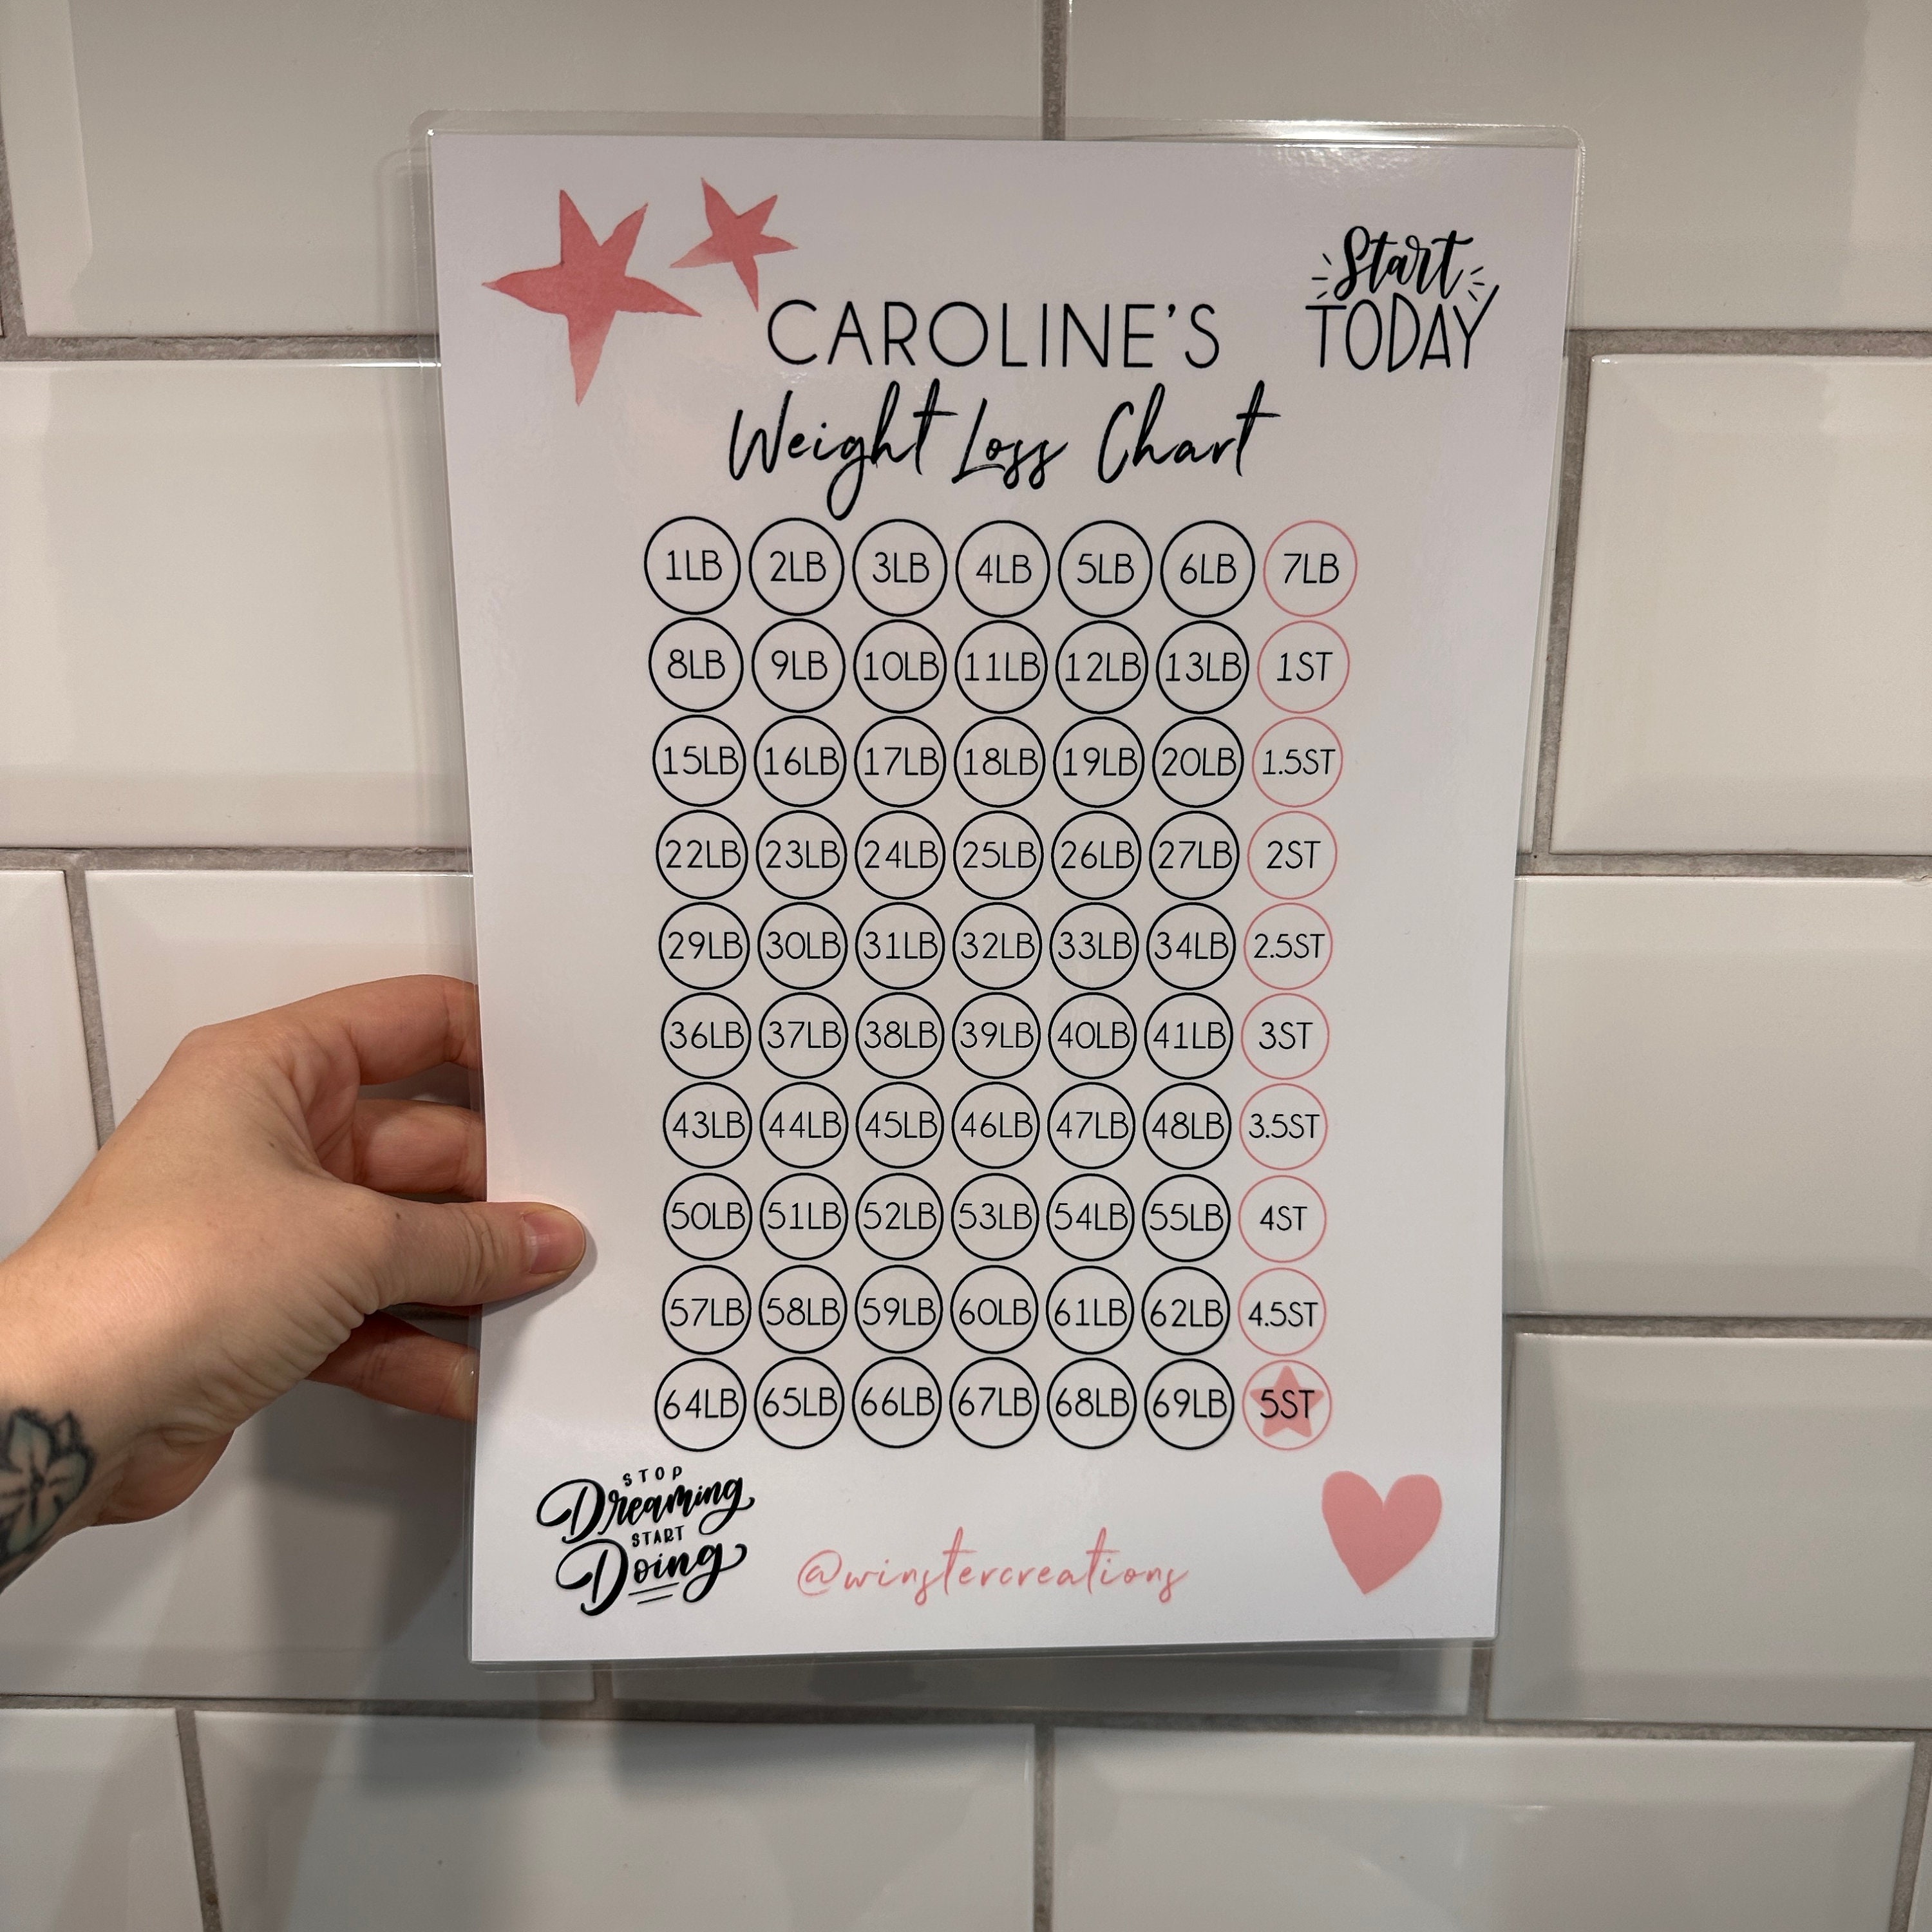 Start
TODAY
CAROLINE'S
Weight Loss Chart
1LB 2LB 3LB 4LB 5LB 6LB 7LB
8LB 9LB 10LB 11LB 12LB 13LB 1ST
15LB 16LB 17LB 18LB 19LB 20LB 1.5ST
22LB 23LB 24LB 25LB 26LB 27LB 2ST
29LB 30LB 31LB 32LB 33LB 34LB 2.5ST
36LB 37LB 38LB 39LB 40LB 41LB 3ST
43LB 44LB 45LB 46LB 47LB 48LB 3.5ST
50LB 51LB 52LB 53LB 54LB 55LB 4ST
57LB 58LB 59LB 60LB 61LB 62LB 4.5ST
64LB 65LB 66LB 67LB 68LB 69LB 5ST
STOP
Dreaming
START
Doing
@winstercreations